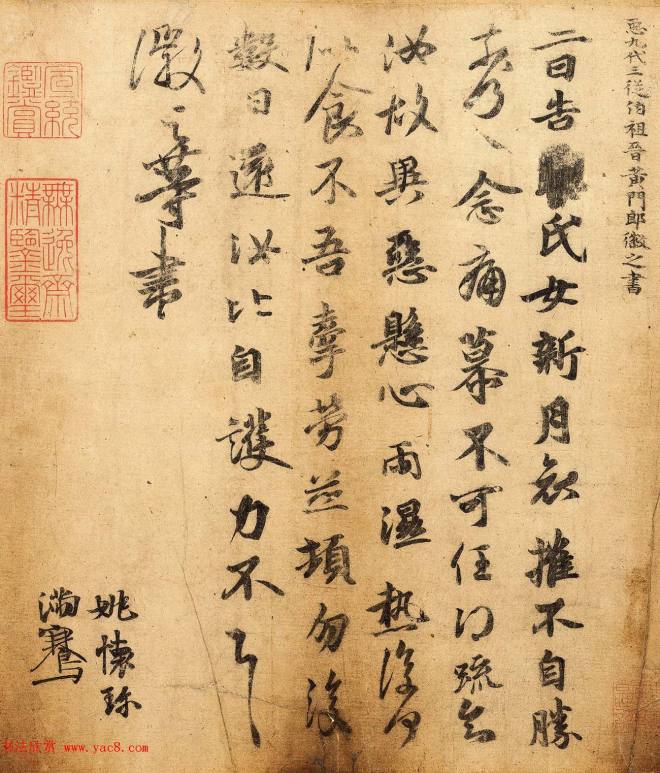 𢘑九代三從伯祖晉黃門郎徽之書
二日告氏女新月哀摧不自勝
奈何〻念痛慕不可任得疏知
汝故異惡懸心雨濕熱復何
似食不吾牽勞並頓勿復
數日還汝比自護力不具
徽之等書
姚懷珍
滿騫
宣統鑑賞
無逸齋精鑒璽
书法欣赏 www.yac8.com